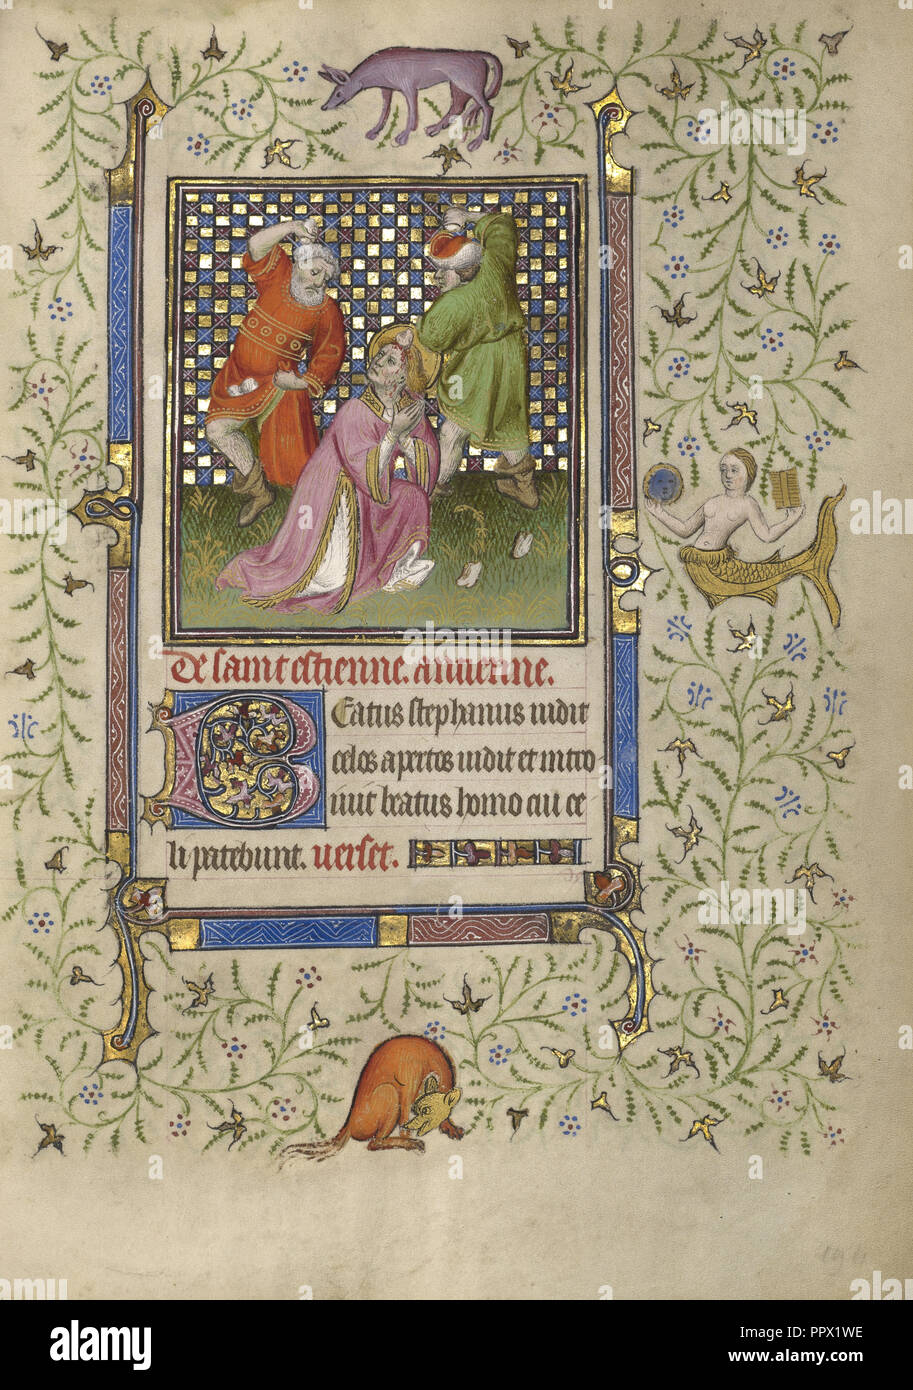 De saint estienne. antienne.
Beatus stephanus uidit
celos apertos uidit et intro
iuit beatus homo cui ce
li patebunt. verset.
194
alamy
Image ID: PPX1WE
www.alamy.com